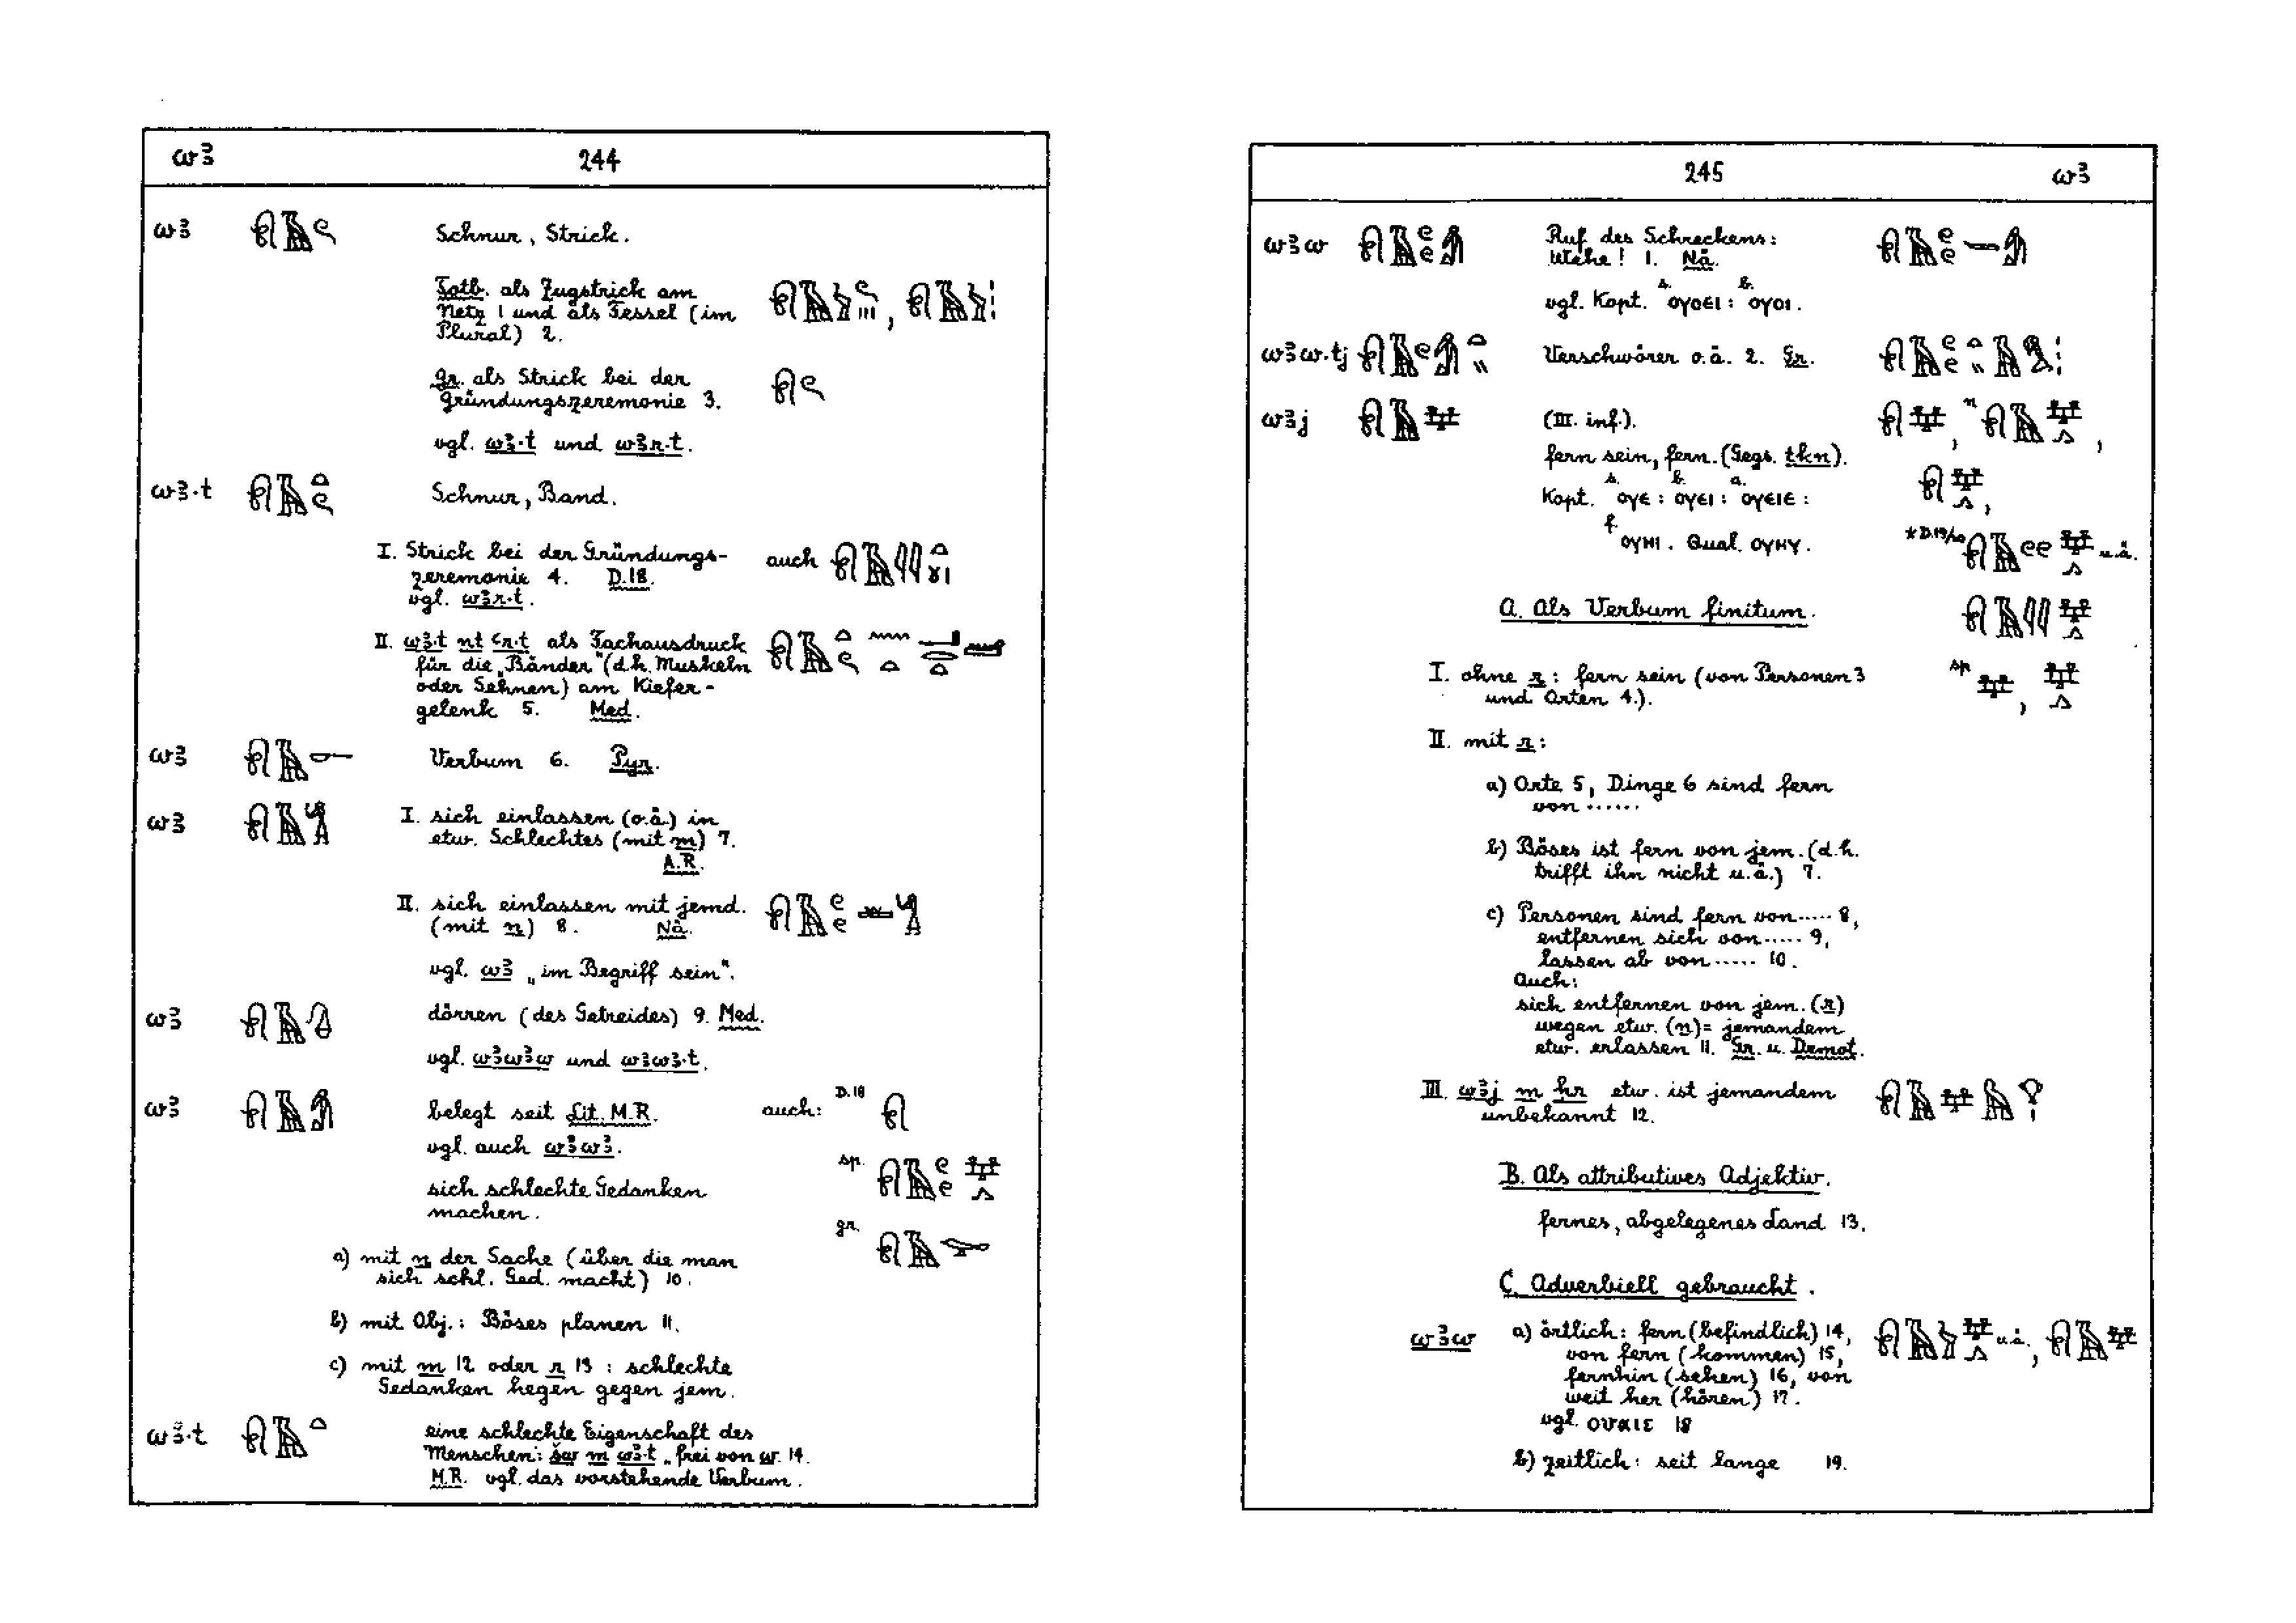 wꜣ 244
wꜣ Schnur, Strick.
Totb. als Zugstrick am
Netz 1 und als Fessel (im
Plural) 2.
gr. als Strick bei der
Gründungszeremonie 3.
vgl. wꜣ·t und wꜣr·t.
wꜣ·t Schnur, Band.
I. Strick bei der Gründungs- auch
zeremonie 4. D.18.
vgl. wꜣr·t.
II. wꜣ·t nt ꜥr·t als Fachausdruck
für die „Bänder“ (d.h. Muskeln
oder Sehnen) am Kiefer-
gelenk 5. Med.
wꜣ Verbum 6. Pyr.
wꜣ I. sich einlassen (o.ä.) in
etw. Schlechtes (mit m) 7.
A.R.
II. sich einlassen mit jemd.
(mit n) 8. Nä.
vgl. wꜣ „im Begriff sein“.
wꜣ dörren (des Getreides) 9. Med.
vgl. wꜣwꜣw und wꜣwꜣ·t.
wꜣ belegt seit Lit. M.R. auch: D.18
vgl. auch wꜣwꜣ.
sp.
sich schlechte Gedanken
machen.
gr.
a) mit n der Sache (über die man
sich schl. Ged. macht) 10.
b) mit Obj.: Böses planen 11.
c) mit m 12 oder r 13 : schlechte
Gedanken hegen gegen jem.
wꜣ·t eine schlechte Eigenschaft des
Menschen: šw m wꜣ·t „frei von w. 14.
M.R. vgl. das vorstehende Verbum.
245 wꜣ
wꜣw Ruf des Schreckens:
Wehe! 1. Nä.
s. b.
vgl. Kopt. ⲟⲩⲟⲉⲓ : ⲟⲩⲟⲓ.
wꜣw·tj Verschwörer o.ä. 2. Gr.
wꜣj (III. inf.).
fern sein, fern. (Gegs. tkn).
s. b. a.
Kopt. ⲟⲩⲉ : ⲟⲩⲉⲓ : ⲟⲩⲉⲓⲉ :
f. ⲟⲩⲏⲓ. Qual. ⲟⲩⲏⲩ. *D.19/20 u.ä.
A. Als Verbum finitum.
I. ohne r : fern sein (von Personen 3 sp.
und Orten 4.).
II. mit r :
a) Orte 5, Dinge 6 sind fern
von ······
b) Böses ist fern von jem. (d.h.
trifft ihn nicht u.ä.) 7.
c) Personen sind fern von ····· 8,
entfernen sich von ····· 9,
lassen ab von ····· 10.
Auch:
sich entfernen von jem. (r)
wegen etw. (n) = jemandem
etw. erlassen 11. Gr. u. Demot.
III. wꜣj m ḥr etw. ist jemandem
unbekannt 12.
B. Als attributives Adjektiv.
fernes, abgelegenes Land 13.
C. Adverbiell gebraucht.
wꜣw a) örtlich: fern (befindlich) 14, u.ä.,
von fern (kommen) 15,
fernhin (sehen) 16, von
weit her (hören) 17.
vgl. ⲟⲩⲁⲓⲉ 18
b) zeitlich: seit lange 19.